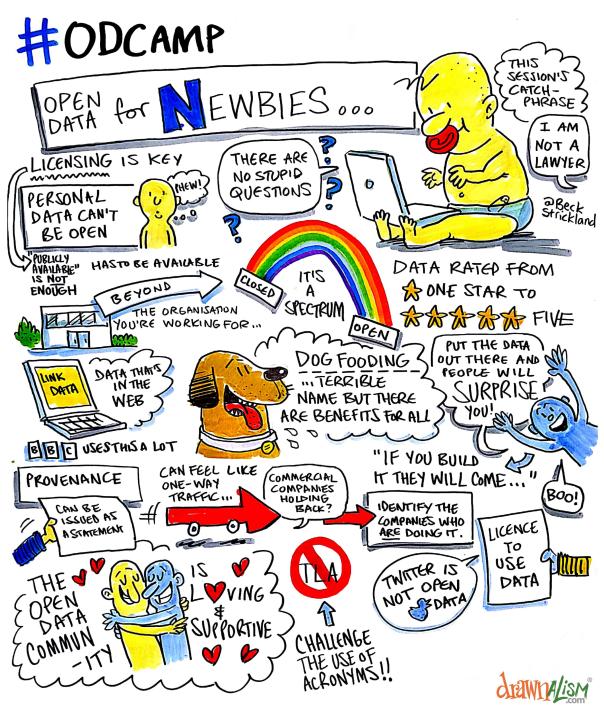 #ODCAMP
OPEN
DATA for NEWBIES...
THIS
SESSION'S
CATCH-
PHRASE
I AM
NOT A
LAWYER
@Beck
Strickland
LICENSING IS KEY
PERSONAL
DATA CAN'T
BE OPEN
(NEW!)
THERE ARE
NO STUPID
QUESTIONS
?
?
?
"PUBLICLY
AVAILABLE"
IS NOT
ENOUGH
HAS TO BE AVAILABLE
BEYOND
THE ORGANISATION
YOU'RE WORKING FOR...
CLOSED
IT'S
A
SPECTRUM
OPEN
DATA RATED FROM
ONE STAR TO
FIVE
LINK
DATA
DATA THAT'S
IN THE
WEB
BBC USES THIS A LOT
DOG FOODING
...TERRIBLE
NAME BUT THERE
ARE BENEFITS FOR ALL
PUT THE DATA
OUT THERE AND
PEOPLE WILL
SURPRISE
YOU!
"IF YOU BUILD
IT THEY WILL COME..."
BOO!
PROVENANCE
CAN BE
ISSUED AS
A STATEMENT
CAN FEEL LIKE
ONE-WAY
TRAFFIC...
COMMERCIAL
COMPANIES
HOLDING
BACK?
IDENTIFY THE
COMPANIES WHO
ARE DOING IT.
LICENCE
TO
USE
DATA
TWITTER IS
NOT OPEN
DATA
THE
OPEN
DATA
COMMUN
-ITY
IS
LOVING
&
SUPPORTIVE
TLA
CHALLENGE
THE USE OF
ACRONYMS!!
drawnalism
.com